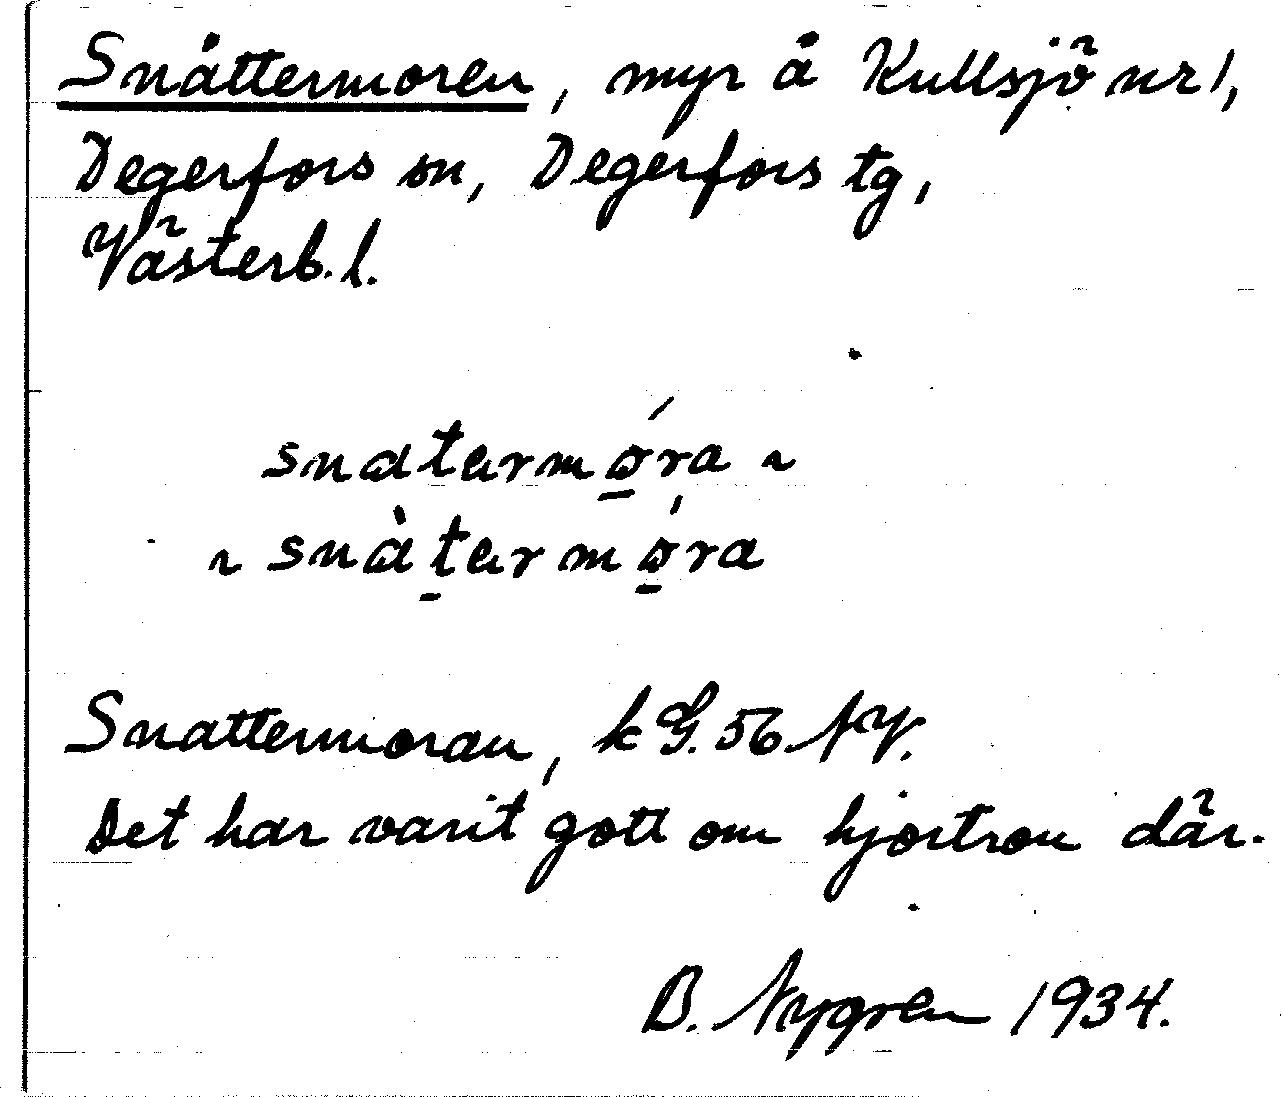 Snåttermoren, myr å Kullsjö nr 1,
Degerfors sn, Degerfors tg,
Västerb. l.
snatermo̱ra ~
~ snàt̠ermo̱ra
Snattermoran, k G. 56 NV.
Det har varit gott om hjortron där.
B. Nygren 1934.